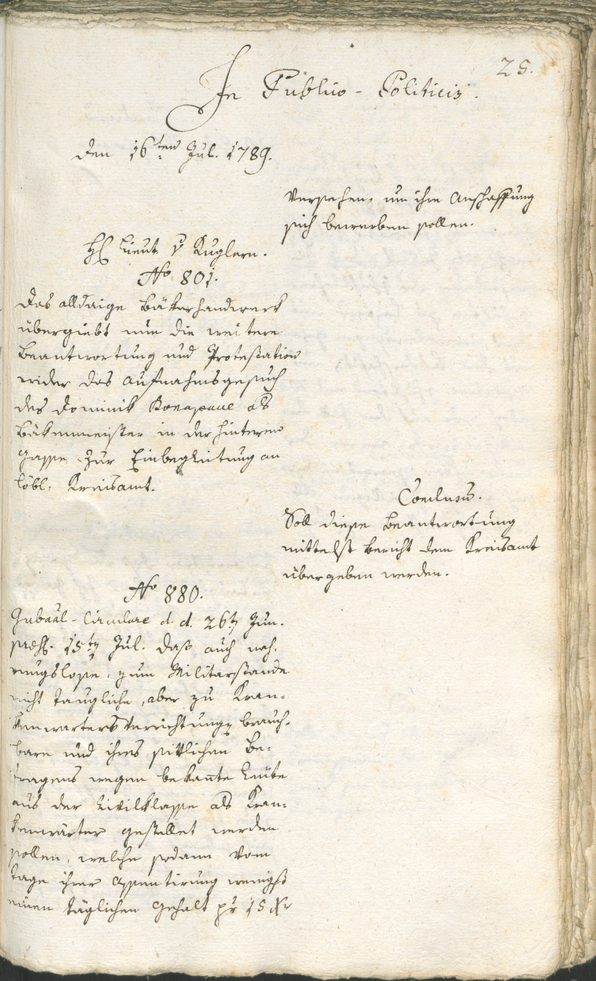 25.
In Publico-Politicis.
den 16ten Jul. 1789.
Versehen, um ihre Anschaffung
sich bewerben sollen.
H Lieut v Kuglern.
No 801.
Das alldaige Bäkerhandwerk
übergiebt nun die weitere
Beantwortung und Protestation
wider das Aufnahmsgesuch
des Dominik als
Bäkenmeister in der hintern
Gasse. Zur Einbegleitung an
löbl. Kreisamt.
Conclusum.
Soll diese Beantwortung
mittelst Bericht dem Kreisamt
übergeben werden.
No 880.
Gubaal-Circulare d. d. 26tn Jun.
präs. 15tn Jul. daß auch nah-
rungslose, zum Militarstande
nicht taugliche, aber zu Kran-
kenwarters Verrichtungen brauch-
bare und ihres sittlichen Be-
tragens wegen bekañte Leute
aus der Civilklasse als Kran-
kenwärter gestellet werden
sollen, welche sodann vom
Tage ihrer Assentirung wenigst
einen täglichen Gehalt pr 15 Xr